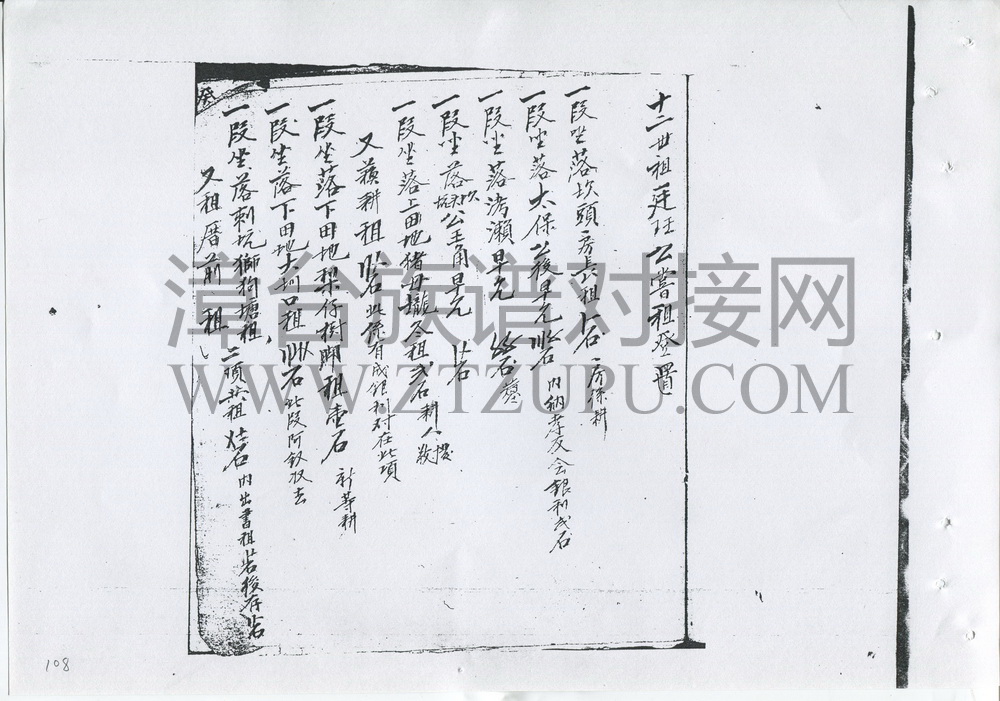 十二世祖廷玨公嘗租登置
一段坐落坎頭房長租石 房孫耕
一段坐落太保公後早允石 內納孝友會銀利弍石
一段坐落濤瀨早允石
一段坐落坎坑公王角早允石
一段坐落上田地猪母壠冬租弍石耕人
又蘋耕租石此係有成銀利对在此項
一段坐落下田地樹脚租壱石 新等耕
一段坐落下田地大圳口租石此段阿釵收去
一段坐落刺坑獅狗塘租,二項共租石內出書租後存石
又租厝前租
漳台族谱对接网
WWW.ZTZUPU.COM
108